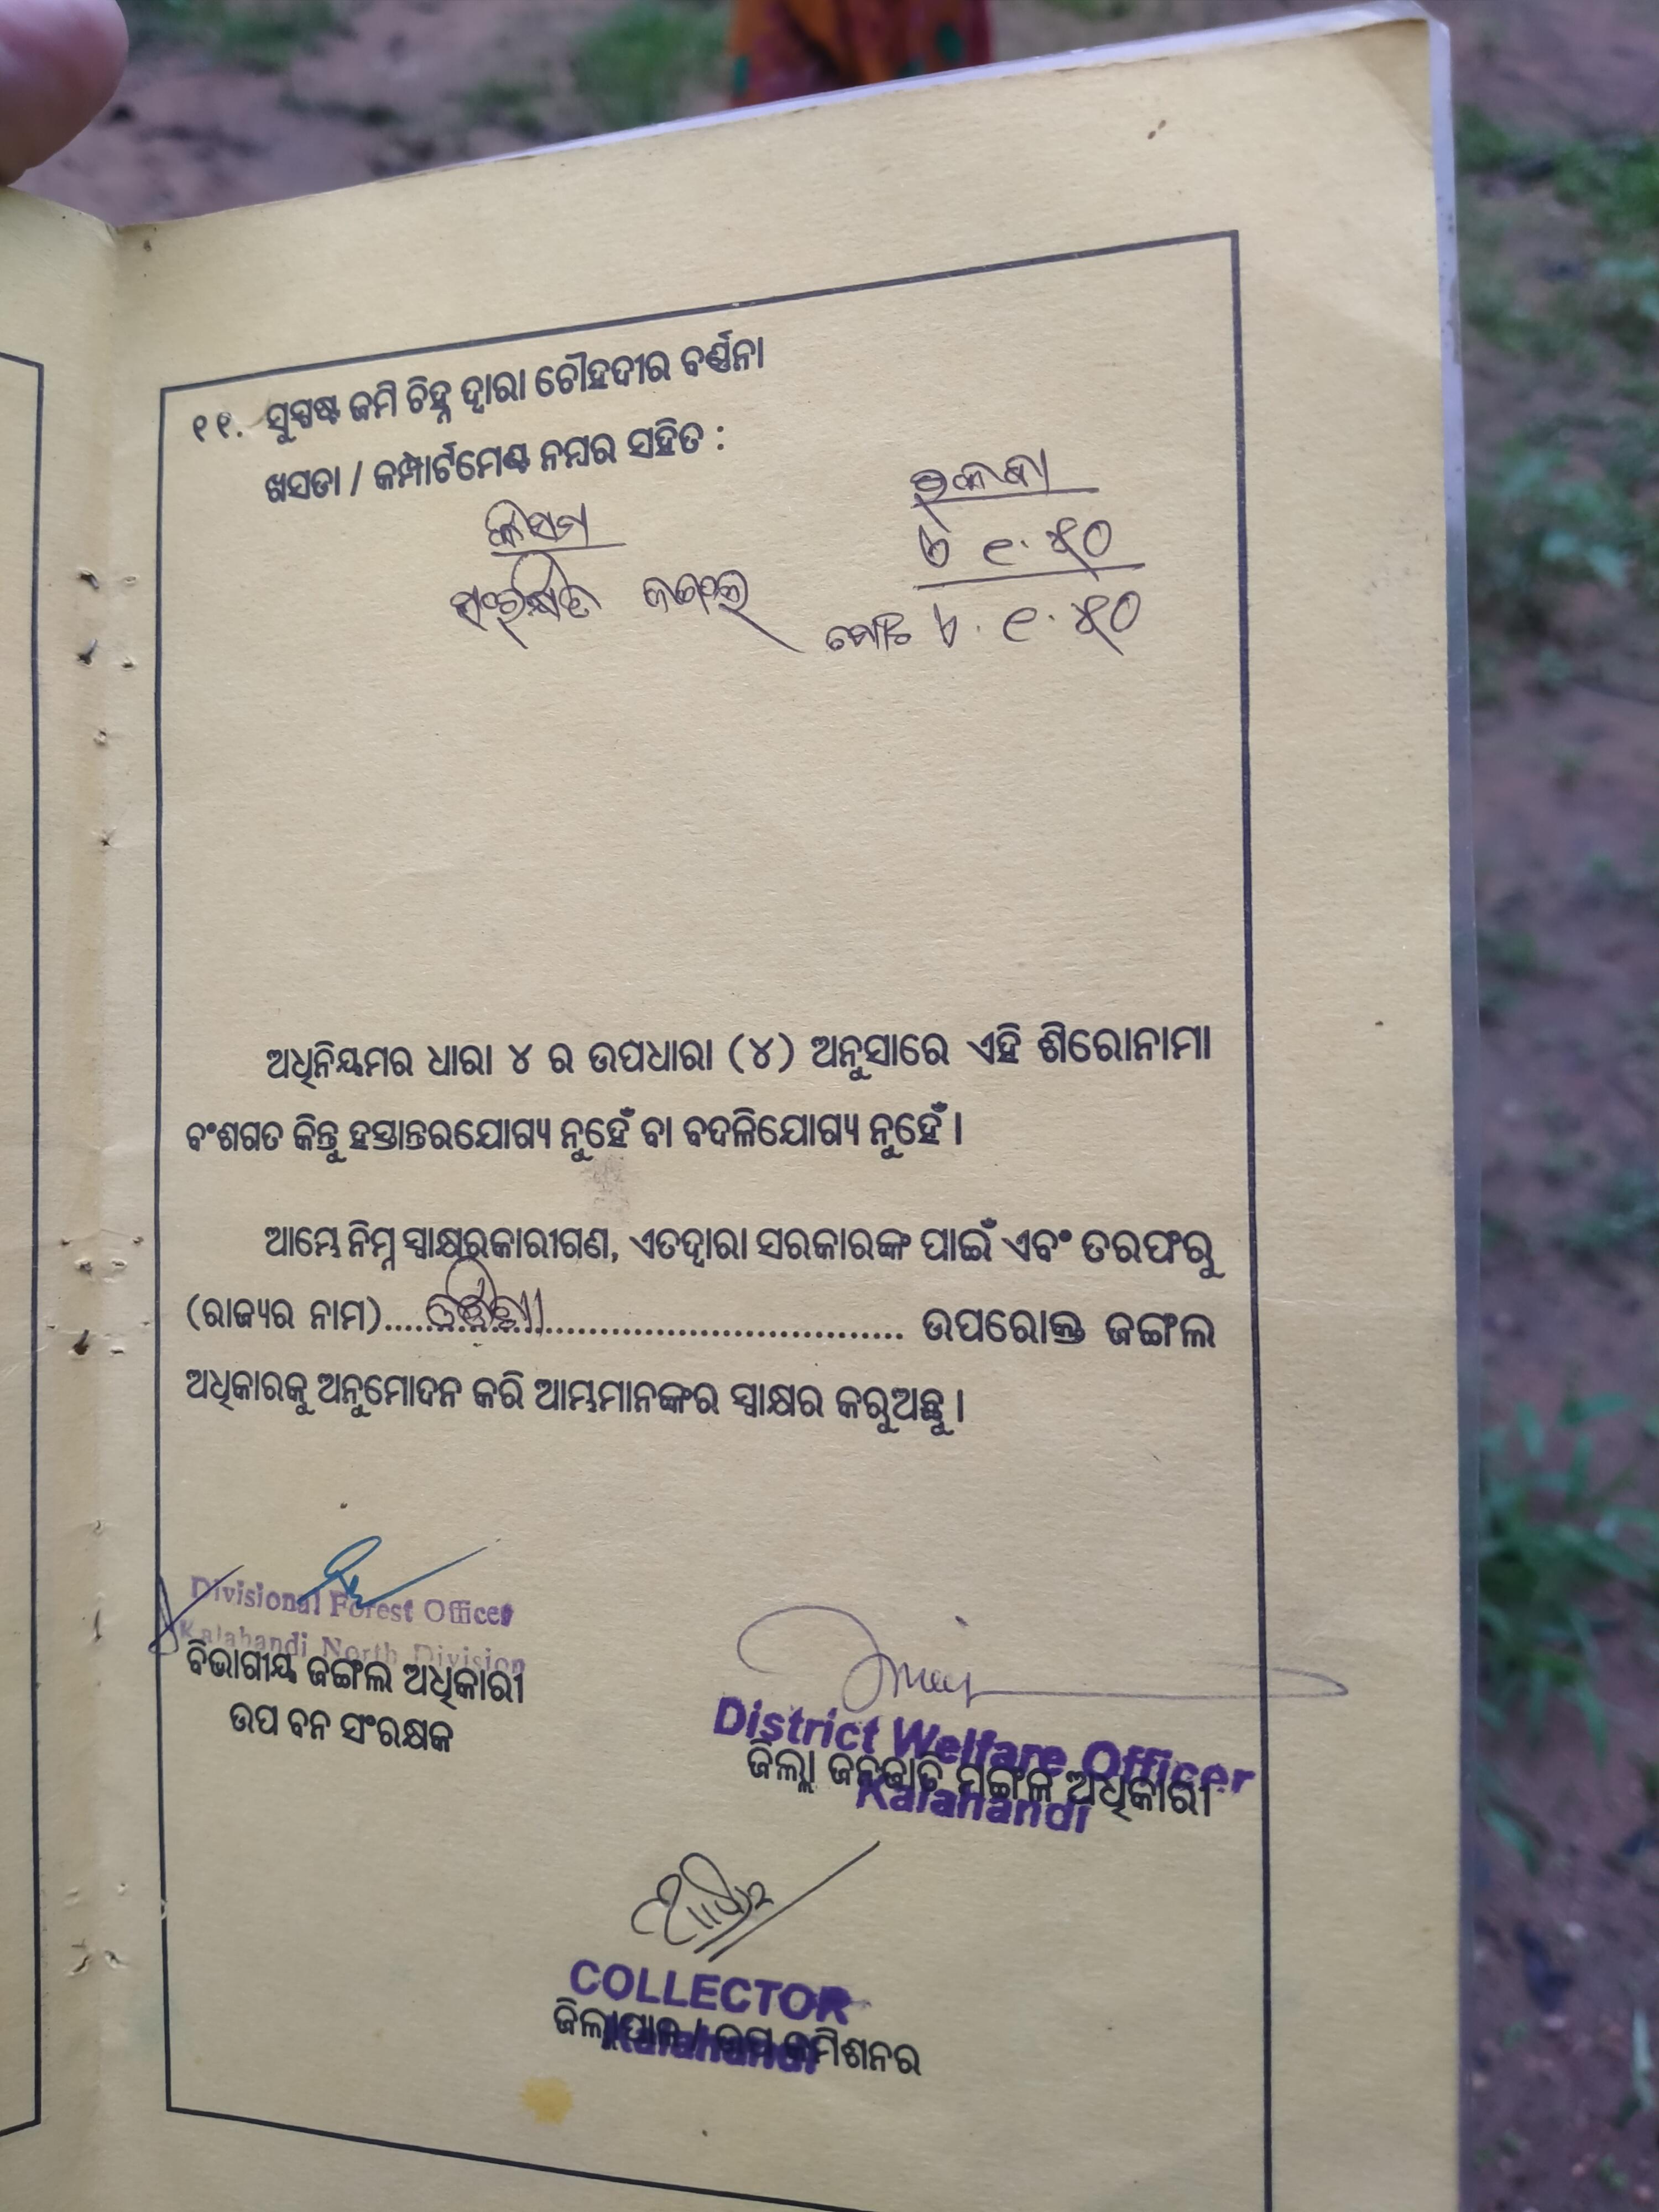 ୧୧. ସୁସ୍ପଷ୍ଟ ଜମି ଚିହ୍ନ ଦ୍ୱାରା ଚୌହଦୀର ବର୍ଣ୍ଣନା
ଖସଡା / କମ୍ପାର୍ଟମେଣ୍ଟ ନମ୍ବର ସହିତ :
କିସମ ରକବା
ସଂରକ୍ଷିତ ଜଙ୍ଗଲ ୧.୫୦
ମୋଟ ୧.୫୦
ଅଧିନିୟମର ଧାରା ୪ ର ଉପଧାରା (୪) ଅନୁସାରେ ଏହି ଶିରୋନାମା
ବଂଶଗତ କିନ୍ତୁ ହସ୍ତାନ୍ତରଯୋଗ୍ୟ ନୁହେଁ ବା ବଦଳିଯୋଗ୍ୟ ନୁହେଁ।
ଆମ୍ଭେ ନିମ୍ନ ସ୍ୱାକ୍ଷରକାରୀଗଣ, ଏତଦ୍ୱାରା ସରକାରଙ୍କ ପାଇଁ ଏବଂ ତରଫରୁ
(ରାଜ୍ୟର ନାମ)....ଓଡ଼ିଶା.... ଉପରୋକ୍ତ ଜଙ୍ଗଲ
ଅଧିକାରକୁ ଅନୁମୋଦନ କରି ଆମ୍ଭମାନଙ୍କର ସ୍ୱାକ୍ଷର କରୁଅଛୁ।
Divisional Forest Officer
Kalahandi North Division
ବିଭାଗୀୟ ଜଙ୍ଗଲ ଅଧିକାରୀ
ଉପ ବନ ସଂରକ୍ଷକ
District Welfare Officer
ଜିଲ୍ଲା ଜନଜାତି ମଙ୍ଗଳ ଅଧିକାରୀ
Kalahandi
COLLECTOR
ଜିଲ୍ଲାପାଳ / ଉପ କମିଶନର
Kalahandi